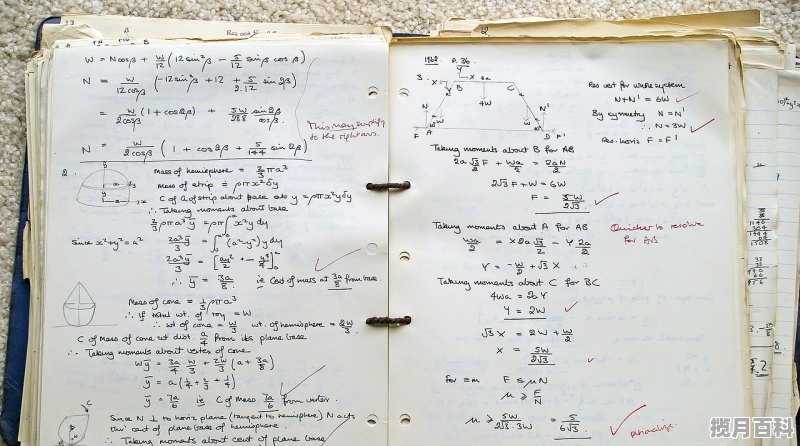 33
W = Ncosβ + W/12 (12sin²β − 5/12 sinβ cosβ)
N = W/12cosβ (−12sin²β + 12 + 5/2.12 sin2β)
= W/2cosβ (1 + cos2β) + 5W/288 sin2β/cosβ.
This may simplify
to the right ans.
N = W/2cosβ (1 + cos2β + 5/144 sin2β)
2.
Mass of hemisphere = 2/3 πa³
Mass of strip = ρπx²δy
C of G of strip about base as y = ρπx²yδy
∴ Taking moments about base
2/3 ρπa³ȳ = ρπ∫x²y dy
since x²+y² = a²
2a³ȳ/3 = ∫(a²−y²)y dy
2a³ȳ/3 = [ay²/2 − y⁴/4]
∴ ȳ = 3a/8 ie Cent of mass at 3a/8 from base.
Mass of cone = 1/3 ρπa³
∴ If total wt. of toy = W
∴ wt of cone = W/3 wt. of hemisphere = 2W/3
C of mass of cone at dist. a/4 from its plane base
∴ Taking moments about vertex of cone
Wȳ = 3a/4 W/3 + 2W/3 (a + 3a/8)
ȳ = a(1/4 + 2/3 + 1/4)
ȳ = 7a/6 ie C of mass 7a/6 from vertex.
Since N ⊥ to horiz plane (tangent to hemisphere) N acts
thro' cent of plane base of hemisphere.
∴ Taking moments about cent of plane base
1968 P. 36
3.
X
B
C
4W
N
N'
W
F
A
D
F'
Res vert for whole system
N+N' = 6W
By symmetry N = N'
∴ N = 3W
Res. horiz F = F'
Taking moments about B for AB
2a √3/2 F + Wa/2 = 2aN/2
2√3F + W = 6W
F = 5W/2√3
Taking moments about A for AB
Quicker to resolve
for AB
Wa/2 = X2a√3/2 − Y 2a/2
Y = −W/2 + √3X
Taking moments about C for BC
4Wa = 2aY
Y = 2W
√3X = 2W + W/2
X = 5W/2√3
for =m F ≤ μN
μ ≥ F/N
μ ≥ 5W/2√3·3W = 5/6√3
rationalize.
揽月百科